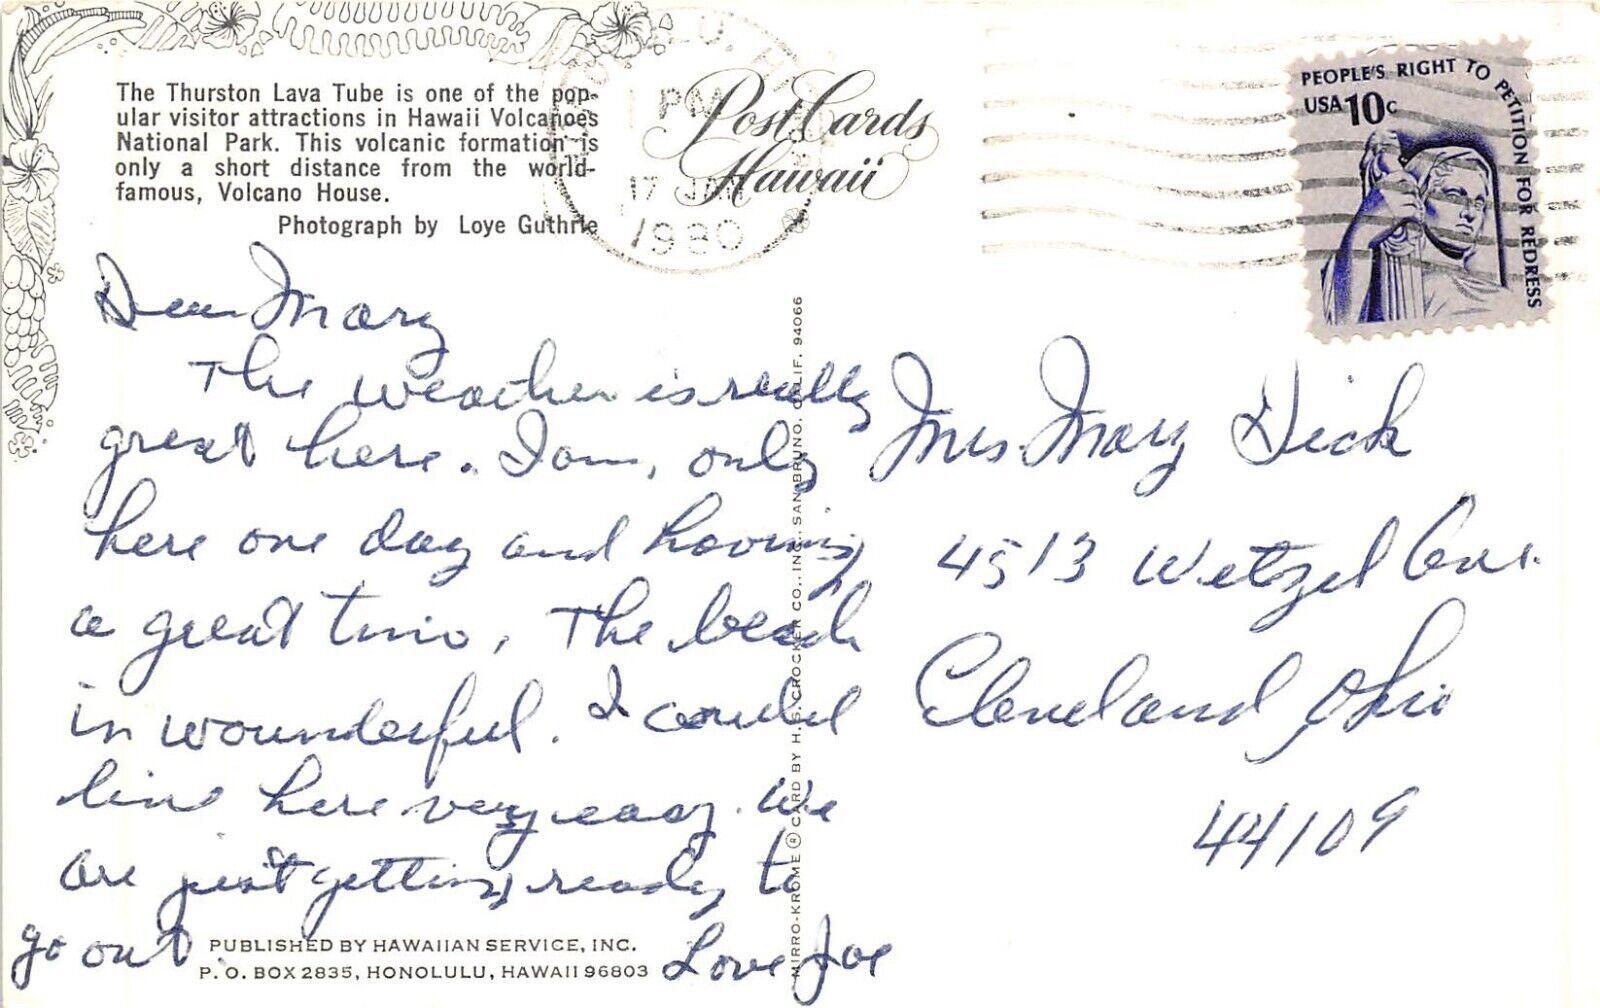 The Thurston Lava Tube is one of the pop-
ular visitor attractions in Hawaii Volcanoes
National Park. This volcanic formation is
only a short distance from the world-
famous, Volcano House.
Photograph by Loye Guthrie
PM
17 JAN
1980
Post Cards
Hawaii
PEOPLE'S RIGHT TO PETITION FOR REDRESS
USA 10c
Dear Mary
The weather is really
great here. I am, only
here one day and having
a great time, The beach
in wounderful. I could
live here very easy. We
are just getting ready to
go out.
Love Joe
Mrs. Mary Dick
4513 Wetzel Ave.
Cleveland, Ohio
44109
MIRRO-KROME ® CARD BY H. S. CROCKER CO., INC., SAN BRUNO, CALIF. 94066
PUBLISHED BY HAWAIIAN SERVICE, INC.
P. O. BOX 2835, HONOLULU, HAWAII 96803